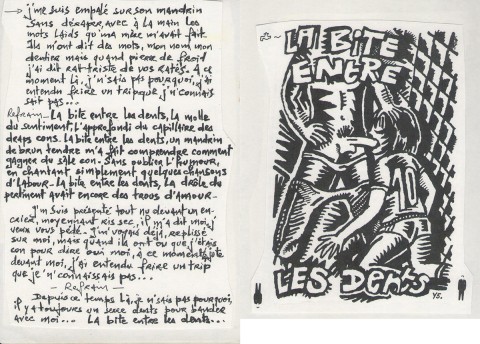 → j'me suis empalé sur son mandrin
sans déraper, avec à la main les
mots laids qu'ma mère m'avait fait.
Ils m'ont dit des mots, mon nom mon
dentier mais quand pierre de froid
j'ai dit rat-triste de vos ratés. À ce
moment là, j'n'sais pas pourquoi, j'ai
entendu faire un trip que j'n'connais
sait pas...
Refrain - La bite entre les dents, la molle
du sentiment, l'approfondi du capillaire des
draps cons. La bite entre les dents, un mandrin
de brun tendre m'a fait comprendre comment
gagner du sale son. Sans oublier l'humour,
en chantant simplement quelques chansons
d'labour - la bite entre les dents. La drôle du
pertinent avait encore des trous d'amour -
J'm'suis présenté tout nu devant un en-
moyennant
sur moi, mais quand ils ont vu que j'étais
son pour dire oui moi, à ce moment
devant moi, j'ai entendu faire un trip
que je n'connaissais pas...
- Refrain -
Depuis ce temps là, je n'sais pas pourquoi,
il y a toujours un sexe dents pour bander
avec moi... La bite entre les dents...
LA BITE
ENTRE
10
LES DENTS
YS.